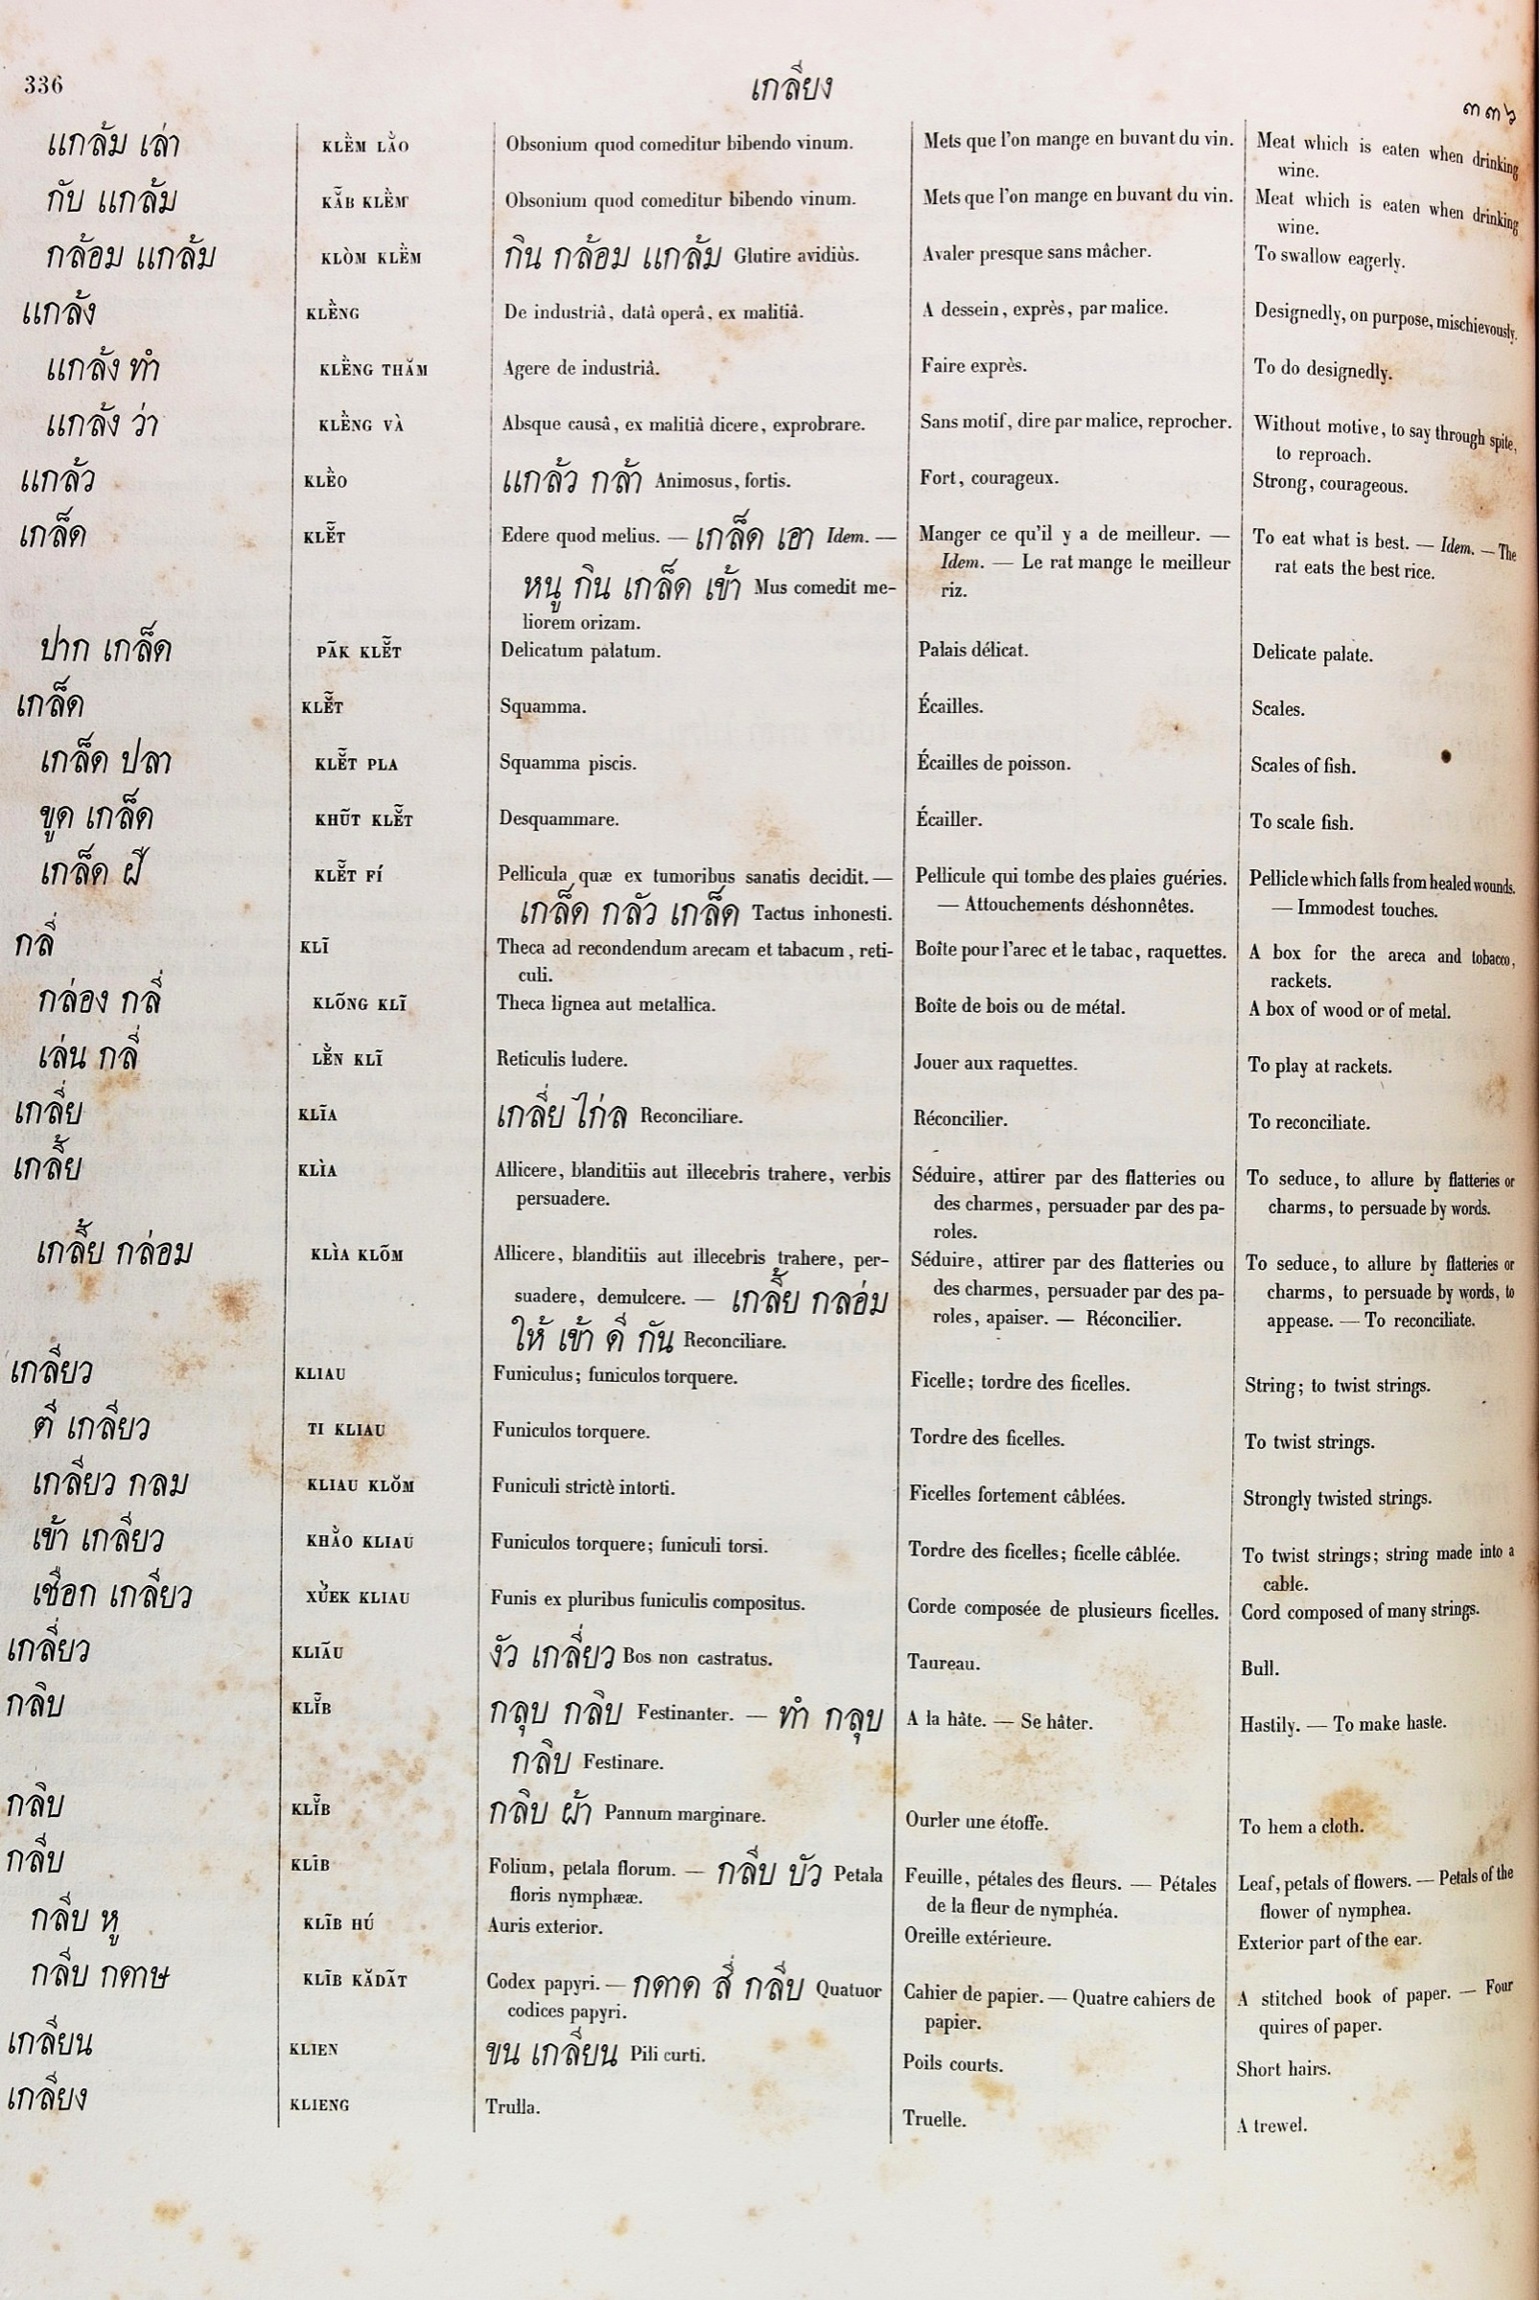 336
เกลียง
๓๓๖
แกล้ม เล่า KLẼM LÀO Obsonium quod comeditur bibendo vinum. Mets que l'on mange en buvant du vin. Meat which is eaten when drinking
wine.
กับ แกล้ม Obsonium quod comeditur bibendo vinum. Mets que l'on mange en buvant du vin. Meat which is eaten when drinking
wine.
กล้อม แกล้ม KLÒM KLẼM กิน กล้อม แกล้ม Glutire avidiùs. Avaler presque sans mâcher. To swallow eagerly.
แกล้ง KLẼNG De industriâ, datâ operâ, ex malitiâ. A dessein, exprès, par malice. Designedly, on purpose, mischievously.
แกล้ง ทำ KLẼNG THĂM Agere de industriâ. Faire exprès. To do designedly.
แกล้ง ว่า KLẼNG VÀ Absque causâ, ex malitiâ dicere, exprobrare. Sans motif, dire par malice, reprocher. Without motive, to say through spite,
to reproach.
แกล้ว KLẼO แกล้ว กล้า Animosus, fortis. Fort, courageux. Strong, courageous.
เกล็ด KLẼT Edere quod melius. — เกล็ด เอา Idem. — Manger ce qu'il y a de meilleur. — To eat what is best. — Idem. — The
หนู กิน เกล็ด เข้า Mus comedit me- Idem. — Le rat mange le meilleur rat eats the best rice.
liorem orizam. riz.
ปาก เกล็ด PÃK KLẼT Delicatum palatum. Palais délicat. Delicate palate.
เกล็ด KLẼT Squamma. Écailles. Scales.
เกล็ด ปลา KLẼT PLA Squamma piscis. Écailles de poisson. Scales of fish.
ขูด เกล็ด KHŨT KLẼT Desquammare. Écailler. To scale fish.
เกล็ด ฝี KLẼT FÍ Pellicula quæ ex tumoribus sanatis decidit. — Pellicule qui tombe des plaies guéries. Pellicle which falls from healed wounds.
เกล็ด กลัว เกล็ด Tactus inhonesti. — Attouchements déshonnêtes. — Immodest touches.
กลี่ KLĨ Theca ad recondendum arecam et tabacum, reti- Boîte pour l'arec et le tabac, raquettes. A box for the areca and tobacco,
culi. rackets.
กล่อง กลี่ KLÕNG KLĨ Theca lignea aut metallica. Boîte de bois ou de métal. A box of wood or of metal.
เล่น กลี่ LẼN KLĨ Reticulis ludere. Jouer aux raquettes. To play at rackets.
เกลี่ย KLĨA เกลี่ย ไก่ล Reconciliare. Réconcilier. To reconciliate.
เกลี้ย KLÌA Allicere, blanditiis aut illecebris trahere, verbis Séduire, attirer par des flatteries ou To seduce, to allure by flatteries or
persuadere. des charmes, persuader par des pa- charms, to persuade by words.
roles.
เกลี้ย กล่อม KLÌA KLÕM Allicere, blanditiis aut illecebris trahere, per- Séduire, attirer par des flatteries ou To seduce, to allure by flatteries or
suadere, demulcere. — เกลี้ย กลอ่ม des charmes, persuader par des pa- charms, to persuade by words, to
ให้ เข้า ดี กัน Reconciliare. roles, apaiser. — Réconcilier. appease. — To reconciliate.
เกลียว KLIAU Funiculus; funiculos torquere. Ficelle; tordre des ficelles. String; to twist strings.
ตี เกลียว TI KLIAU Funiculos torquere. Tordre des ficelles. To twist strings.
เกลียว กลม KLIAU KLŎM Funiculi strictè intorti. Ficelles fortement câblées. Strongly twisted strings.
เข้า เกลียว KHÀO KLIAU Funiculos torquere; funiculi torsi. Tordre des ficelles; ficelle câblée. To twist strings; string made into a
cable.
เชือก เกลียว XŬEK KLIAU Funis ex pluribus funiculis compositus. Corde composée de plusieurs ficelles. Cord composed of many strings.
เกลี่ยว KLIÃU งัว เกลี่ยว Bos non castratus. Taureau. Bull.
กลิบ KLĬB กลุบ กลิบ Festinanter. — ทำ กลุบ A la hâte. — Se hâter. Hastily. — To make haste.
กลิบ Festinare.
กลิบ KLĬB กลิบ ผ้า Pannum marginare. Ourler une étoffe. To hem a cloth.
กลีบ KLĨB Folium, petala florum. — กลีบ บัว Petala Feuille, pétales des fleurs. — Pétales Leaf, petals of flowers. — Petals of the
floris nymphææ. de la fleur de nymphéa. flower of nymphea.
กลีบ หู KLĨB HÚ Auris exterior. Oreille extérieure. Exterior part of the ear.
กลีบ กดาษ KLĨB KĂDÃT Codex papyri. — กดาด สี่ กลีบ Quatuor Cahier de papier. — Quatre cahiers de A stitched book of paper. — Four
codices papyri. papier. quires of paper.
เกลียน KLIEN ขน เกลียน Pili curti. Poils courts. Short hairs.
เกลียง KLIENG Trulla. Truelle. A trewel.